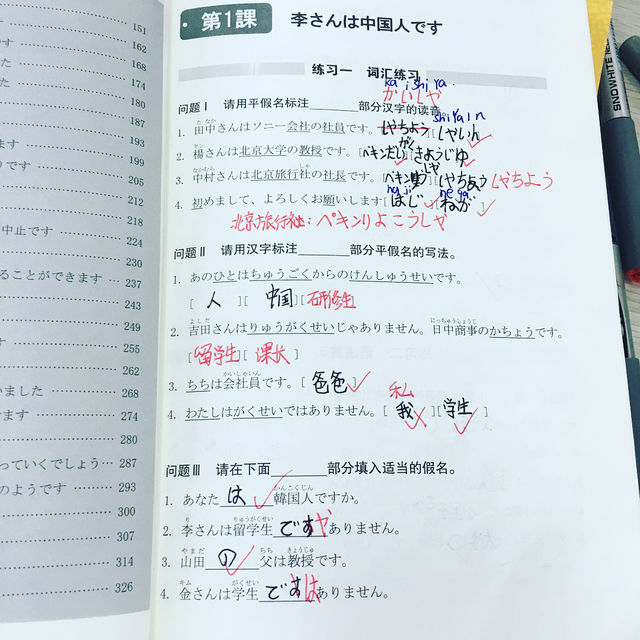 151
162
168
174
183
194
199
205
214
中止です 224
235
ることができます 243
249
255
262
いました 268
ます 274
280
っていくでしょう… 287
のようです 293
300
307
314
326
第1課 李さんは中国人です
练习一 词汇练习
ka i shi ya
かいしゃ
问题Ⅰ 请用平假名标注______部分汉字的读音。
shi ya i n
1. 田中さんはソニー会社の社員です。[しゃちょう][しゃいん]
2. 楊さんは北京大学の教授です。[ペキンだいがく][きょうじゅ]
3. 中村さんは北京旅行社の社長です。[ペキン][しゃちょう] しゃちょう
ha ji ne ga
4. 初めまして、よろしくお願いします[はじ][ねが]
北京旅行社:ペキンりょこうしゃ
问题Ⅱ 请用汉字标注______部分平假名的写法。
1. あのひとはちゅうごくからのけんしゅうせいです。
[人][中国][研修生]
2. 吉田さんはりゅうがくせいじゃありません。日中商事のかちょうです。
[留学生][课长]
3. ちちは会社員です。[爸爸]
私
4. わたしはがくせいではありません。[我][学生]
问题Ⅲ 请在下面______部分填入适当的假名。
1. あなた は 韓国人ですか。
2. 李さんは留学生 ですや ありません。
3. 山田 の 父は教授です。
4. 金さんは学生 ですは ありません。
SNOWHITE NEW